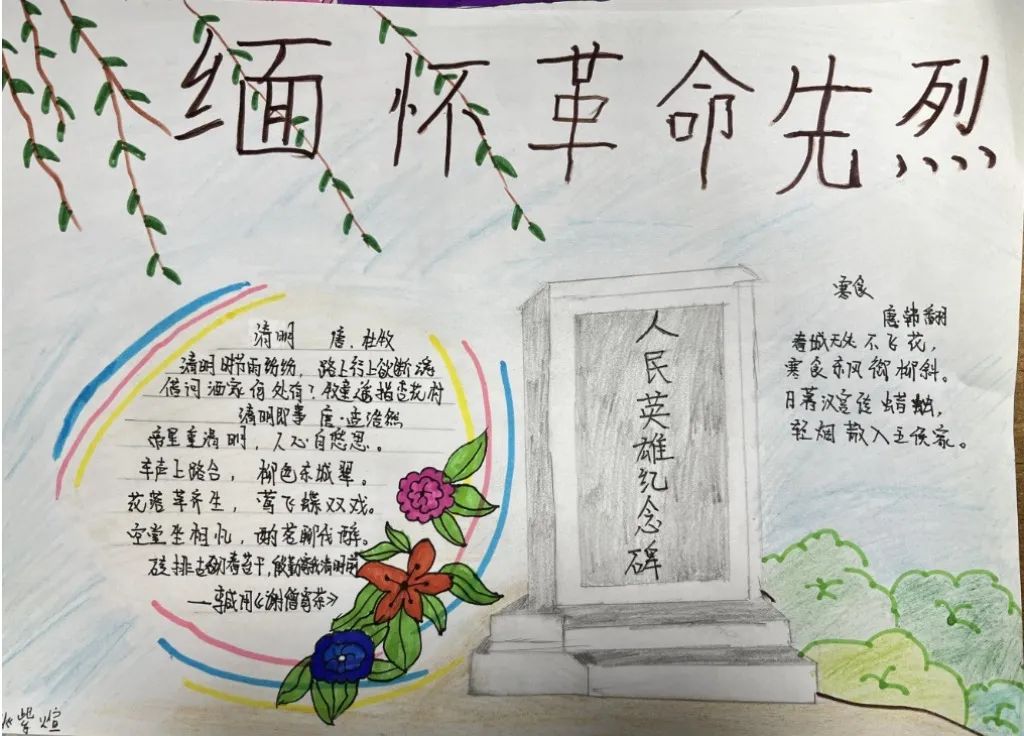 缅怀革命先烈
清明 唐.杜牧
清明时节雨纷纷，路上行上欲断魂
借问酒家何处有？牧童遥指杏花村
清明即事 唐·孟浩然
帝里重清明，人心自愁思。
车声上路合，柳色东城翠。
花落草齐生，莺飞蝶双戏。
空堂坐相忆，酌茗聊代醉。
排 春芒干，殷勤寄我清明前
—李咸用《谢僧寄茶》
人民英雄纪念碑
寒食
唐.韩翻
春城无处不飞花，
寒食东风御柳斜。
日暮汉宫传蜡烛，
轻烟散入王侯家。
紫煊